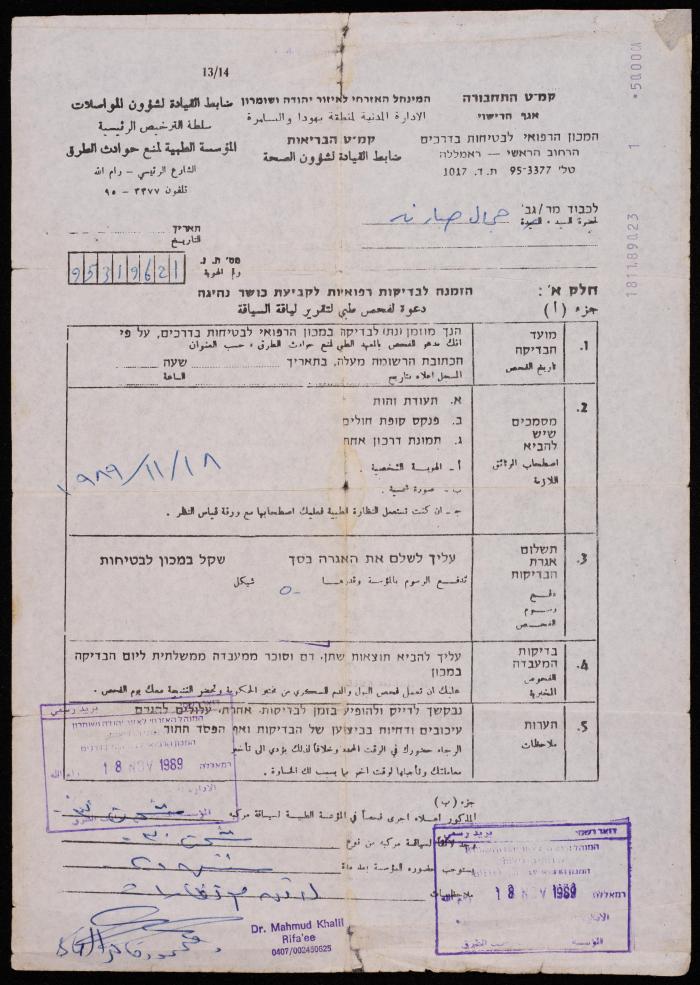 13/14
קמ״ט התחבורה
אגף הרישוי
המכון הרפואי לבטיחות בדרכים
הרחוב הראשי — ראמללה
טל׳ 95-3377 ת.ד. 1017
המינהל האזרחי לאיזור יהודה ושומרון
الادارة المدنية لمنطقة يهودا والسامرة
קמ״ט הבריאות
ضابط القيادة لشؤون الصحة
ضابط القيادة لشؤون المواصلات
سلطة الترخيص الرئيسية
المؤسسة الطبية لمنع حوادث الطرق
الشارع الرئيسي - رام الله
تلفون ٣٣٧٧ - ٩٥
*50.00
1
18.11.89
לכבוד מר/גב׳
لحضرة السيد - السيدة
جمال
תאריך
التاريخ
מס׳ ת.ז.
رقم الهوية
95319621
חלק א׳ :
הזמנה לבדיקות רפואיות לקביעת כושר נהיגה
جزء (أ)
دعوة لفحص طبي لتقرير لياقة السياقة
1.
מועד הבדיקה
تاريخ الفحص
הנך מוזמן/נת לבדיקה במכון הרפואי לבטיחות בדרכים, על פי
انك مدعو للفحص بالمعهد الطبي لمنع حوادث الطرق ، حسب العنوان
הכתובת הרשומה מעלה, בתאריך שעה
المسجل اعلاه بتاريخ الساعة
2.
מסמכים שיש להביא
اصطحاب الوثائق اللازمة
א. תעודת זהות
ב. פנקס קופת חולים
ג. תמונת דרכון אחת
أ - الهوية الشخصية .
ب - صورة شمسية .
ج - ان كنت تستعمل النظارة الطبية فعليك اصطحابها مع ورقة قياس النظر .
١٩٨٩/١١/١٨
3.
תשלום אגרת הבדיקות
دفع رسوم الفحص
עליך לשלם את האגרה בסך שקל במכון לבטיחות
تدفع الرسوم بالمؤسسة وقدرها شيكل
4.
בדיקות המעבדה
الفحوص المخبرية
עליך להביא תוצאות שתן, דם וסוכר ממעבדה ממשלתית ליום הבדיקה
במכון
عليك ان تعمل فحص البول والدم السكري من مختبر الحكومة وتحضر النتيجة معك يوم الفحص .
5.
הערות
ملاحظات
נבקשך לדייק ולהופיע בזמן לבדיקות. אחרת, עלולים להגרם
עיכובים ודחיות בביצוען של הבדיקות ואף הפסד התור.
الرجاء حضورك في الوقت المحدد وخلافا لذلك يؤدي الى تأخير
معاملتك وتأجيلها لوقت آخر مما يسبب لك الخسارة .
جزء (ب)
المذكور اعلاه اجرى فحصا في المؤسسة الطبية لسياقة مركبة
لسياقة مركبة من نوع
يستوجب حضوره المؤسسة بعد مدة
ملاحظات
بريد رسمي
המנהל האזרחי לאיזור יהודה ושומרון
ראמאללה
18 NOV 1989
رام الله
Dr. Mahmud Khalil
Rifa'ee
0407/002450625
דואר רשמי
بريد رسمي
ראמאללה
18 NOV 1989